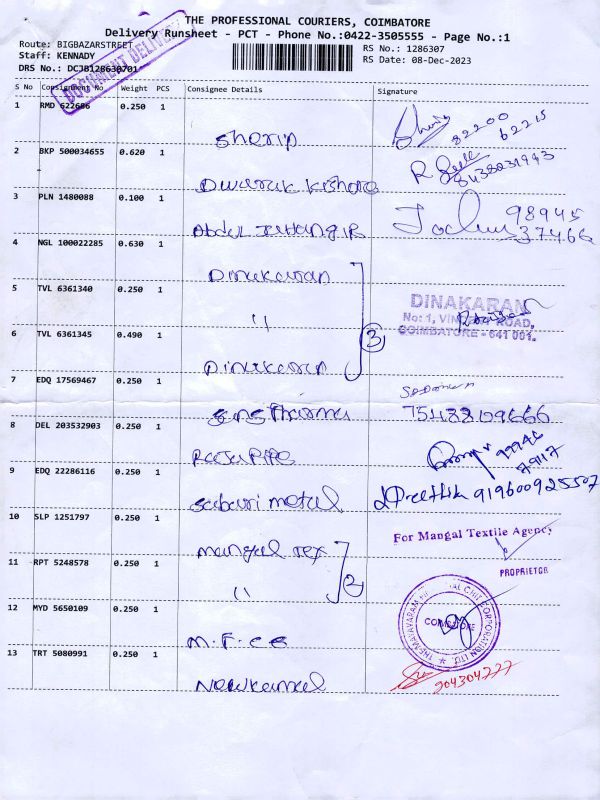 THE PROFESSIONAL COURIERS, COIMBATORE
Delivery Runsheet - PCT - Phone No.:0422-3505555 - Page No.:1
Route: BIGBAZARSTREET
RS No.: 1286307
Staff: KENNADY
RS Date: 08-Dec-2023
DRS No.: DCJB128630701
DOCUMENT DELIVERY
S No Consignment No Weight PCS Consignee Details Signature
1 RMD 622686 0.250 1 Sherip 82200 62215
2 BKP 500034655 0.620 1 Dwarak Kishore 8438031943
3 PLN 1480088 0.100 1 Abdul Jahangir 98945 37466
4 NGL 100022285 0.630 1 Dinakaran
5 TVL 6361340 0.250 1 "
DINAKARAN
No: 1, ROAD,
COIMBATORE - 641 001.
6 TVL 6361345 0.490 1 Dinakaran
3
7 EDQ 17569467 0.250 1 Sadonen
8 DEL 203532903 0.250 1 Raja Pipe 99946 79117
9 EDQ 22286116 0.250 1 Sabari metal Preethik 919600925507
10 SLP 1251797 0.250 1 Mangal Tex
For Mangal Textile Agency
PROPRIETOR
11 RPT 5248578 0.250 1 " 2
12 MYD 5650109 0.250 1 M.F.C
COIMBATORE
13 TRT 5080991 0.250 1 Newkamal 904304777